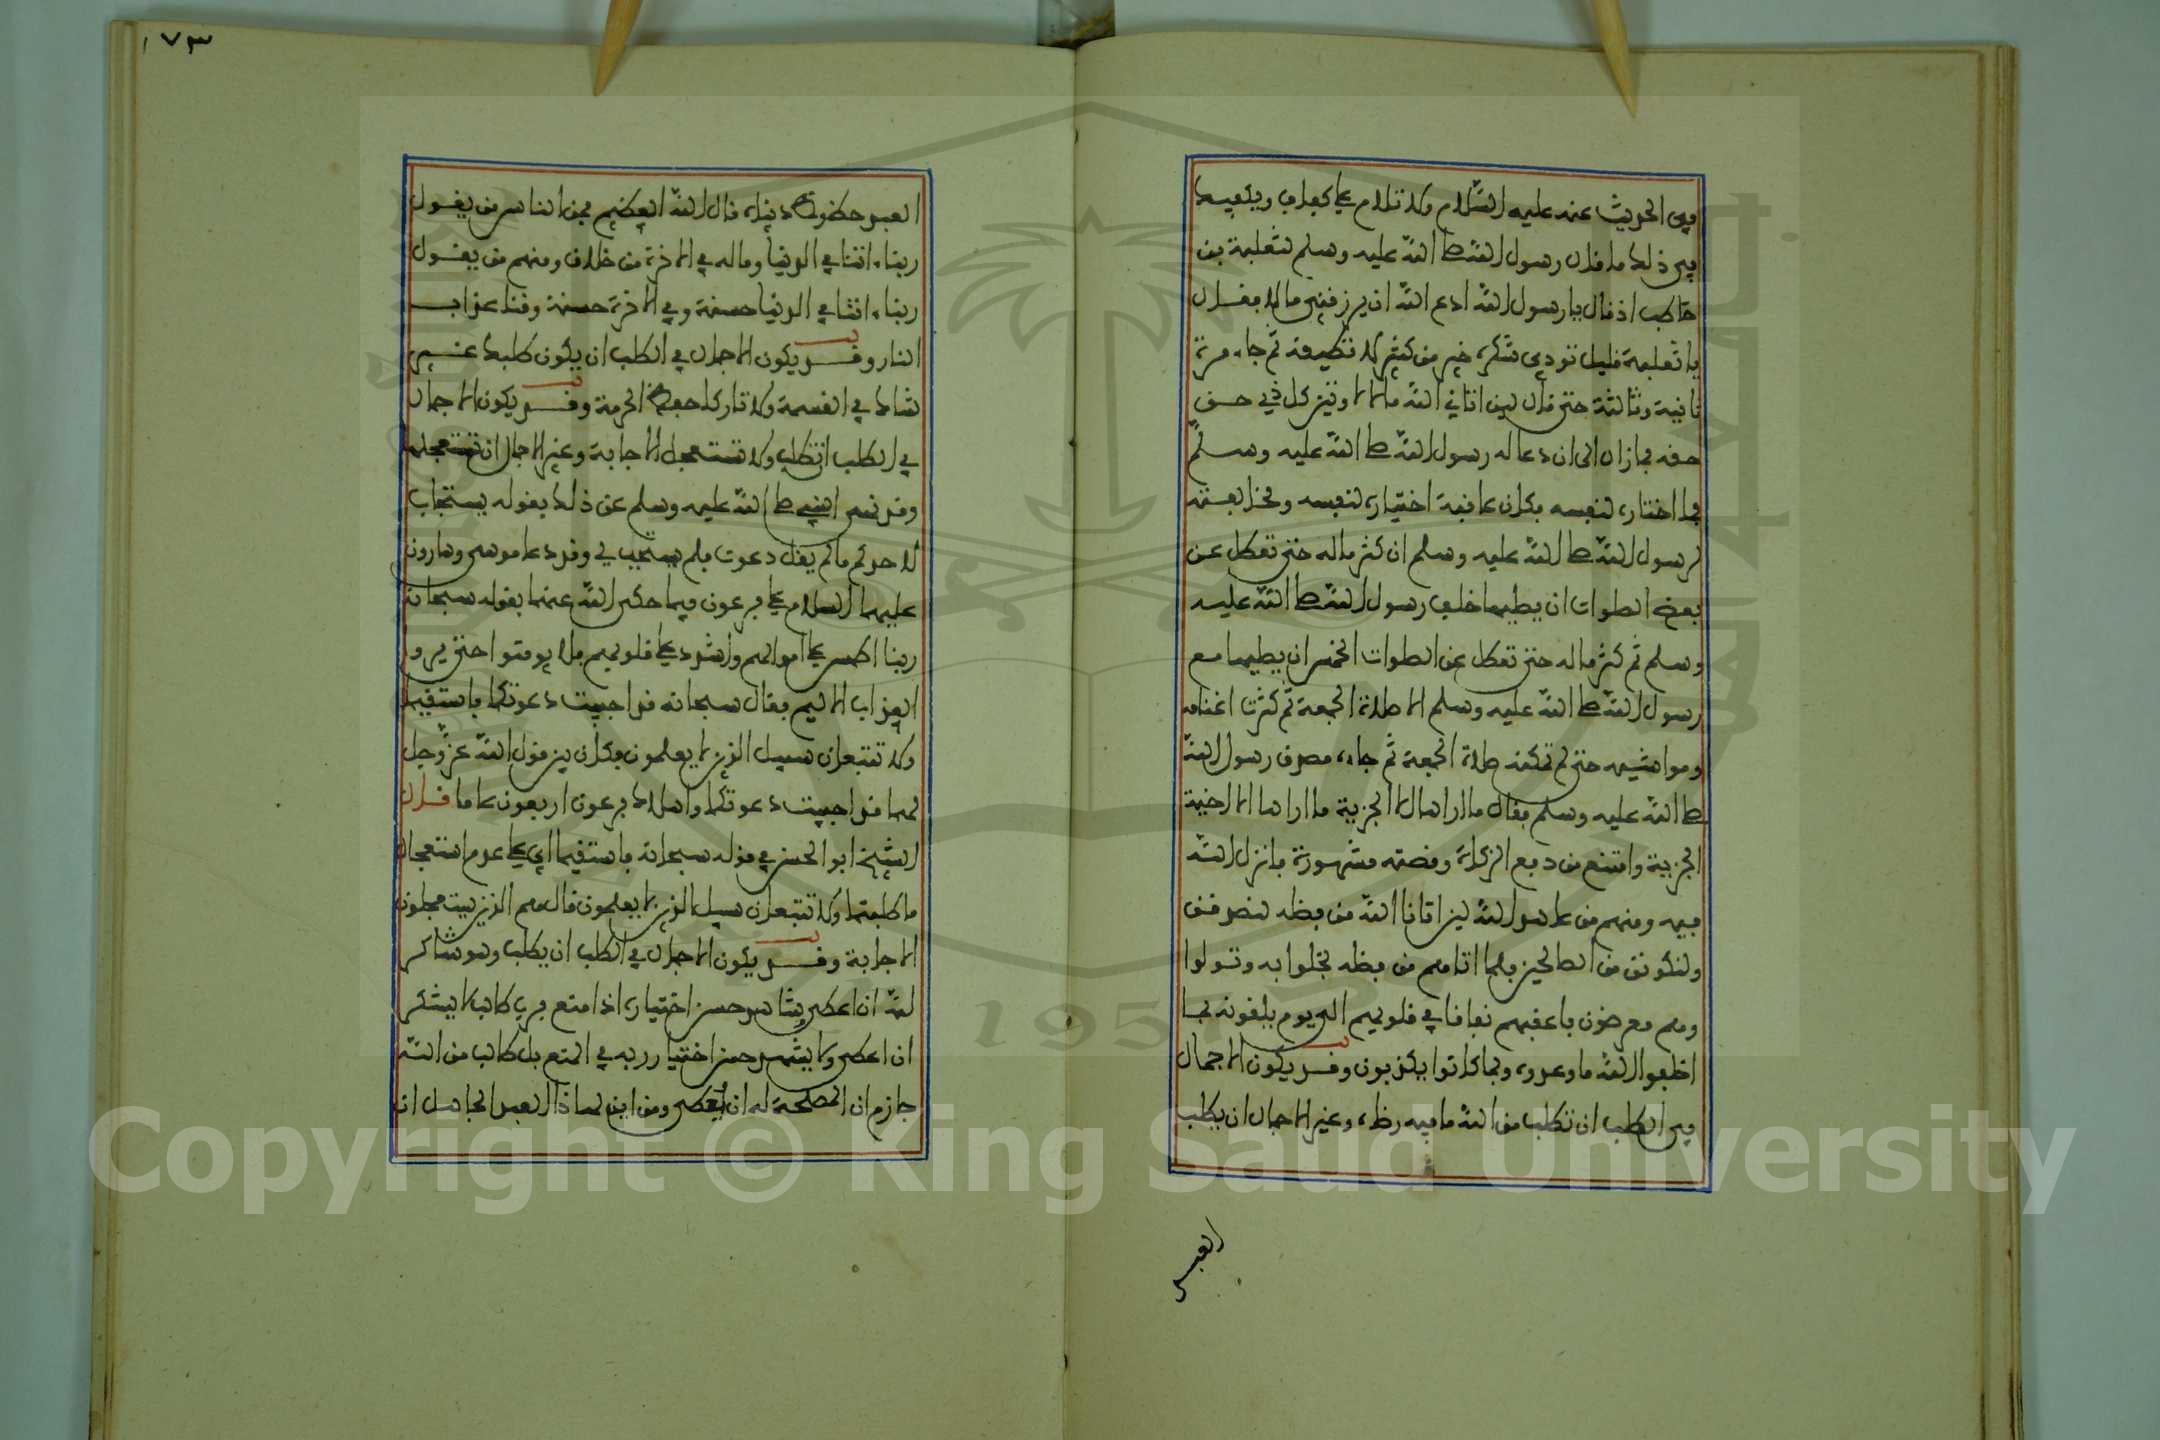 وفي الحديث عنه عليه السلام ولا تلام على كفاف ويكفيك
في ذلك ما قال رسول الله صلى الله عليه وسلم لثعلبة بن
حاطب اذ قال يا رسول الله ادع الله ان يرزقني مالا فقال
يا ثعلبة قليل تودي شكره خير من كثير لا تطيقه ثم جاء مرة
ثانية وثالثة حتى قال لين اتاني الله مالا لاوتين كل ذي حق
حقه فما زال الى ان دعا له رسول الله صلى الله عليه وسلم
بما اختاره لنفسه فكان عاقبة اختياره لنفسه ومخالفته
لرسول الله صلى الله عليه وسلم ان كثر ماله حتى تعطل عن
بعض الصلوات ان يصليها خلف رسول الله صلى الله عليه
وسلم ثم كثر ماله حتى تعطل عن الصلوات الخمس ان يصليها مع
رسول الله صلى الله عليه وسلم الا صلاة الجمعة ثم كثرت اغنامه
ومواشيه حتى لم تمكنه صلاة الجمعة ثم جاءه مصدق رسول الله
صلى الله عليه وسلم فقال ما اراها الا الجزية ما اراها الا اخية
الجزية وامتنع من دفع الزكاة وقصته مشهورة فانزل الله
فيه ومنهم من عاهد الله لين اتانا الله من فضله لنصدقن
ولنكونن من الصالحين فلما اتاهم من فضله بخلوا به وتولوا
وهم معرضون فاعقبهم نفاقا في قلوبهم الى يوم يلقونه بما
اخلفوا الله ما وعدوه وبما كانوا يكذبون وقد يكون الاجمال
في الطلب ان تطلب من الله ما فيه رضاه وغير الاجمال ان يطلب
العبد
١٧٣
العبد حظوظ دنياه قال الله العظيم فمن الناس من يقول
ربنا ءاتنا في الدنيا وما له في الاخرة من خلاق ومنهم من يقول
ربنا ءاتنا في الدنيا حسنة وفي الاخرة حسنة وقنا عذاب
النار وقد يكون الاجمال في الطلب ان يكون طلبك غير
شاك في القسمة ولا تاركا حفظ الحرمة وقد يكون الاجمال
في الطلب ان تطلب ولا تستعجل الاجابة وغير الاجمال ان تستعجلها
وقد نهى النبي صلى الله عليه وسلم عن ذلك بقوله يستجاب
لاحدكم ما لم يقل دعوت فلم يستجب لي وقد دعا موسى وهارون
عليهما السلام على فرعون فيما حكى الله عنهما بقوله سبحانه
ربنا اطمس على اموالهم واشدد على قلوبهم فلا يومنوا حتى يروا
العذاب الاليم فقال سبحانه قد اجيبت دعوتكما فاستقيما
ولا تتبعان سبيل الذين لا يعلمون فكان بين قول الله عز وجل
لهما قد اجيبت دعوتكما واهلاك فرعون اربعون عاما قال
الشيخ ابو الحسن في قوله سبحانه فاستقيما اي على عدم استعجال
ما طلبتما ولا تتبعان سبيل الذين لا يعلمون قال هم الذين يستعجلون
الاجابة وقد يكون الاجمال في الطلب ان يطلب وهو شاكر
لله ان اعطي وشاهد حسن اختياره اذا منع فرب طالب لا يشكر
ان اعطي ولا يشهد حسن اختيار ربه في المنع بل طالب من الله
جازم ان المصلحة له ان يعطى ومن اين لهاذا العبد الجاهل ان
Copyright © King Saud University